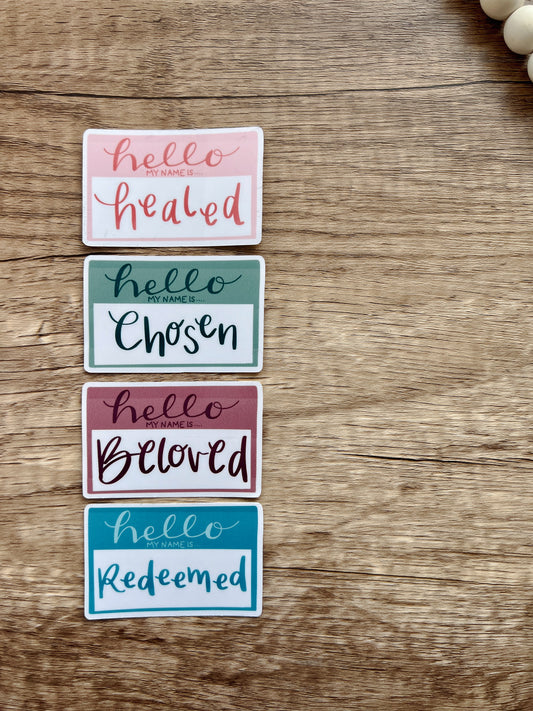 hello
MY NAME IS....
healed
hello
MY NAME IS....
Chosen
hello
MY NAME IS....
Beloved
hello
MY NAME IS
Redeemed